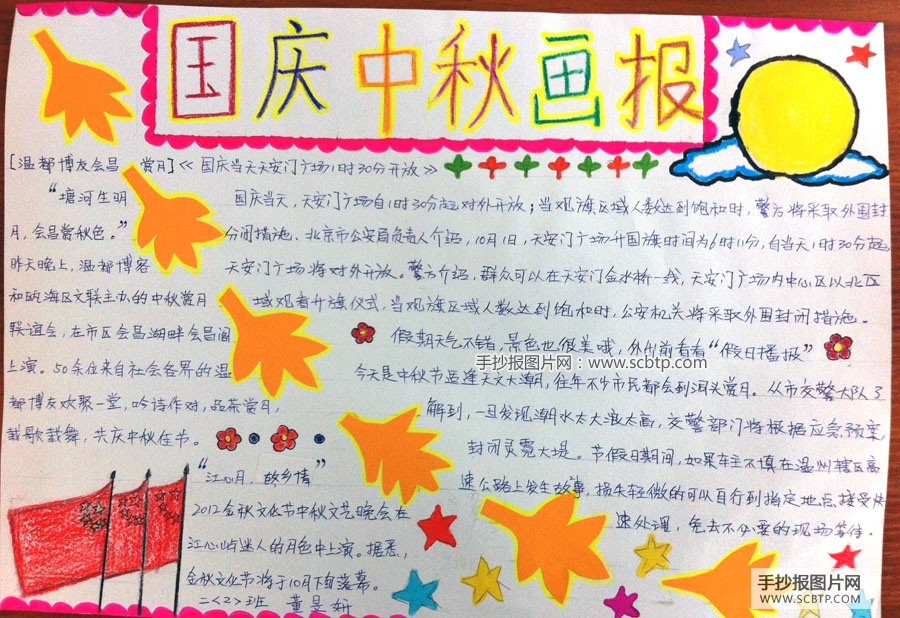 国庆中秋画报
[温都博友会昌 赏月]
“塘河生明
月，会昌赏秋色。”
昨天晚上，温都博客
和瓯海区文联主办的中秋赏月
联谊会，在市区会昌湖畔会昌阁
上演。50余位来自社会各界的温
都博友欢聚一堂，吟诗作对，品茶赏月，
载歌载舞，共庆中秋佳节。
《国庆当天天安门广场1时30分开放》
国庆当天，天安门广场自1时30分起对外开放；当观旗区域人数达到饱和时，警方将采取外围封
闭措施。北京市公安局负责人介绍，10月1日，天安门广场升国旗时间为6时11分，自当天1时30分起
天安门广场将对外开放。警方介绍，群众可以在天安门金水桥一线，天安门广场内中心区以北区
域观看升旗仪式，当观旗区域人数达到饱和时，公安机关将采取外围封闭措施。
假期天气不错，景色也很美哦，外出前看看“假日播报”
手抄报图片网：www.scbtp.com
今天是中秋节亟逢天文大潮，往年不少市民都会到洞头赏月。从市交警大队了
解到，一旦发现潮水太大浪太高，交警部门将根据应急预案
封闭灵霓大堤。节假日期间，如果车主不慎在温州辖区高
速公路上发生故事，损失轻微的可以自行到指定地点接受快
速处理，免去不必要的现场等待。
“江心月，故乡情”
2012金秋文化节中秋文艺晚会在
江心屿迷人的月色中上演。据悉，
金秋文化节将于10月下旬落幕。
二<2>班 董昱妍
手抄报图片网
www.SCBTP.com